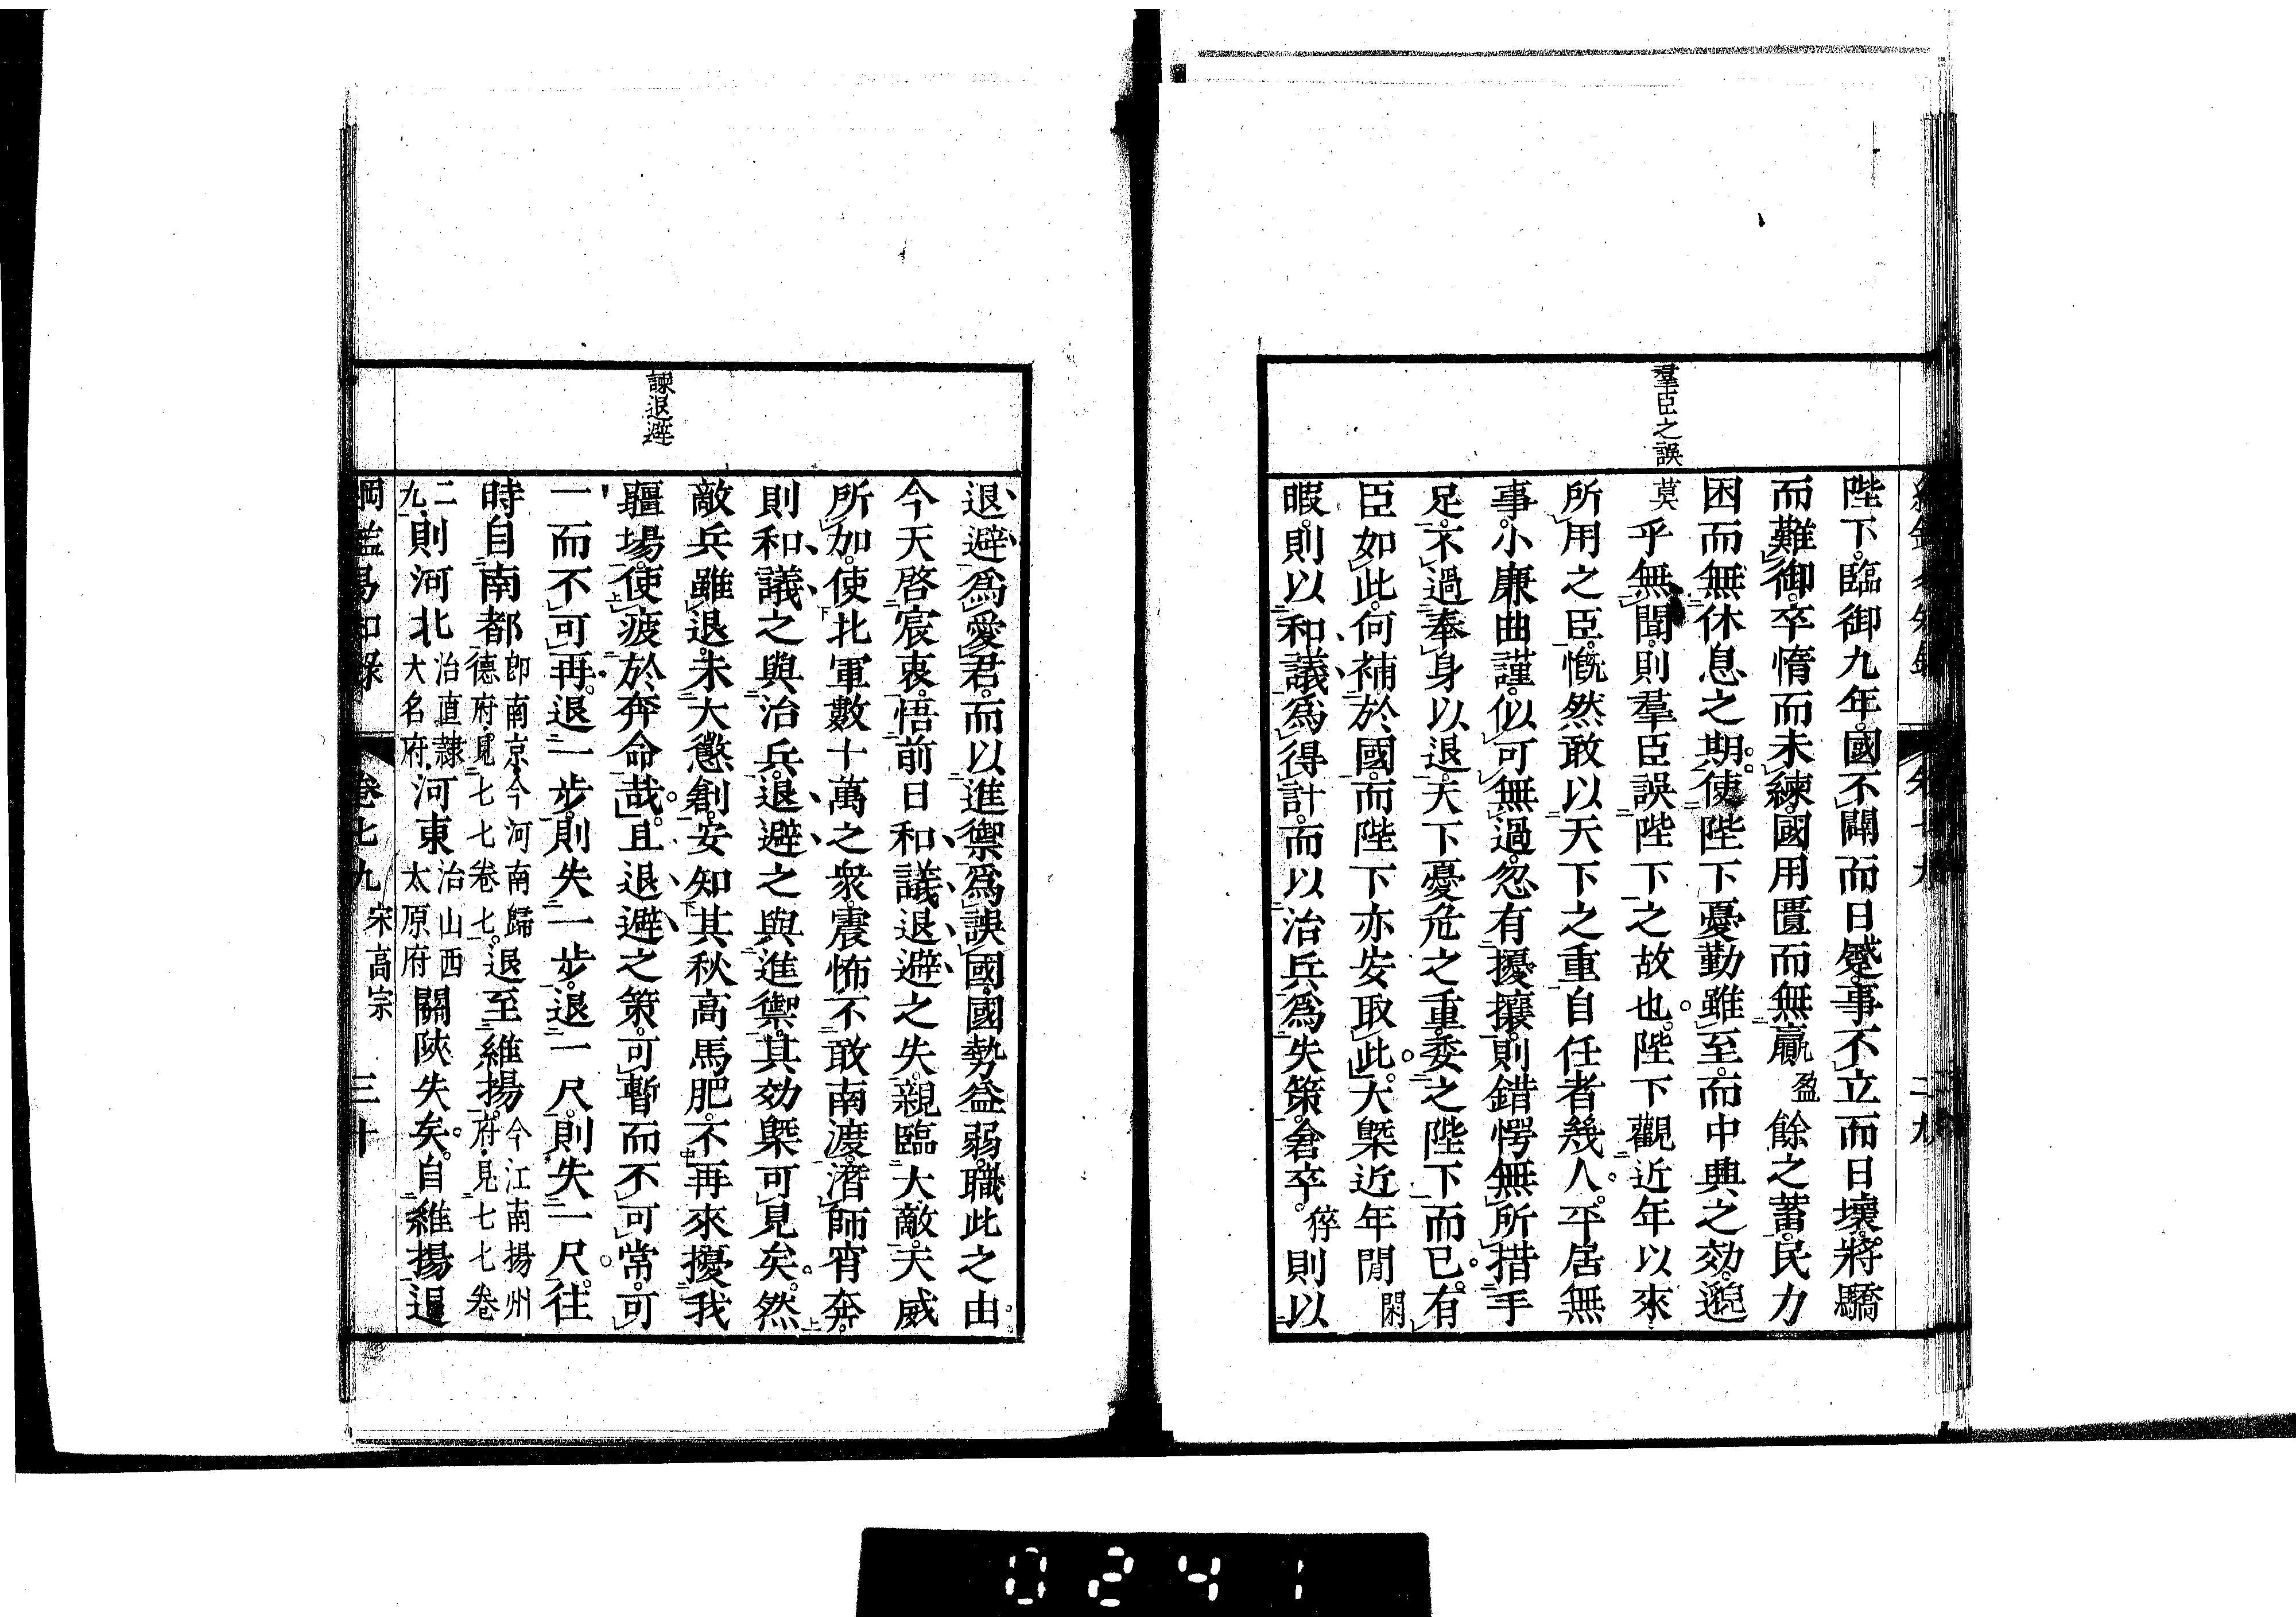 羣臣之誤
陛下。臨御九年。國不闢而日蹙。事不立而日壞。將驕
而難御。卒惰而未練。國用匱而無贏盈餘之蓄。民力
困而無休息之期。使陛下憂勤雖至。而中興之効。邈
莫乎無聞。則羣臣誤陛下之故也。陛下觀近年以來
所用之臣。慨然敢以天下之重自任者幾人。平居無
事。小廉曲謹。似可無過。忽有擾攘。則錯愕無所措手
足。不過奉身以退。天下憂危之重。委之陛下而已。有
臣如此。何補於國。而陛下亦安取此。大槩近年閒閑
暇。則以和議爲得計。而以治兵爲失策。倉卒。猝則以
諫退避
退避爲愛君。而以進禦爲誤國。國勢益弱。職此之由。
今天啓宸衷。悟前日和議退避之失。親臨大敵。天威
所加。使北軍數十萬之衆。震怖不敢南渡。潛師宵奔。
則和議之與治兵。退避之與進禦。其効槩可見矣。然
敵兵雖退。未大懲創。安知其秋高馬肥。不再來擾我
疆場。使疲於奔命哉。且退避之策。可暫而不可常。可
一而不可再。退一步。則失一步。退一尺。則失一尺。往
時自南都卽南京今河南歸德府見七七卷七。退至維揚。今江南揚州府見七七卷
二九則河北治直隸大名府河東治山西太原府關陝失矣。自維揚退
綱鑑易知錄 卷七九 宋高宗 三十
0241